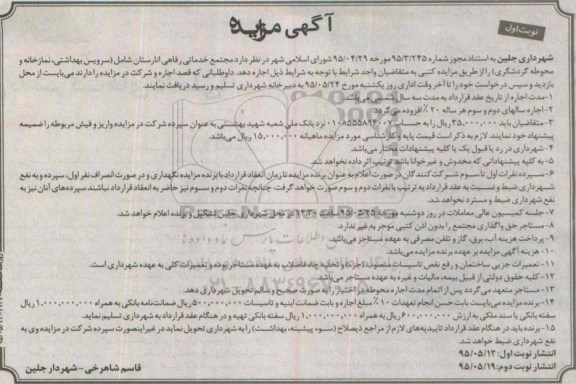 آگهی مزایده
نوبت اول
شهرداری جلین به استناد مجوز شماره ۹۵/۳/۲۴۵ مورخه ۹۵/۰۴/۲۹ شورای اسلامی شهر در نظر دارد مجتمع خدماتی رفاهی انارستان شامل (سرویس بهداشتی، نمازخانه و
محوطه گردشگری) را از طریق مزایده کتبی به متقاضیان واجد شرایط با توجه به شرایط ذیل اجاره دهد. داوطلبانی که قصد اجاره و شرکت در مزایده را دارند می‌بایست از محل
بازدید و سپس درخواست خود را تا آخر وقت اداری روز یکشنبه مورخ ۹۵/۰۵/۲۴ به دبیرخانه شهرداری تسلیم و رسید دریافت نمایند.
۱- مدت اجاره از تاریخ عقد قرارداد به مدت سه سال شمسی می‌باشد.
۲- اجاره سالهای دوم و سوم هر ساله ۲۰٪ افزوده می‌گردد.
۳- متقاضیان باید ۳۵،۰۰۰،۰۰۰ ریال را به حساب ۰۱۰۸۵۵۵۸۹۴۰۰۷ نزد بانک ملی شعبه شهید بهشتی به عنوان سپرده شرکت در مزایده واریز و فیش مربوطه را ضمیمه
پیشنهاد خود نمایند. لازم به ذکر است قیمت پایه و کارشناسی مورد مزایده ماهیانه ۱۵،۰۰۰،۰۰۰ ریال می‌باشد.
۴- شهرداری در رد یا قبول یک یا کلیه پیشنهادات مختار می‌باشد.
۵- به کلیه پیشنهاداتی که مخدوش و غیر خوانا باشد ترتیب اثر داده نخواهد شد.
۶- سپرده نفرات اول تا سوم شرکت کنندگان در صورت اعلام به عنوان برنده مزایده تا زمان انعقاد قرارداد با برنده مزایده نگهداری و در صورت انصراف نفر اول، سپرده وی به نفع
شهرداری ضبط و نسبت به عقد قرارداد به ترتیب با نفرات دوم و سوم صورت خواهد گرفت. چنانچه نفرات دوم و سوم نیز حاضر به انعقاد قرارداد نباشند سپرده‌های آنان نیز به
نفع شهرداری ضبط و مسترد نخواهد شد.
۷- جلسه کمیسیون عالی معاملات در روز دوشنبه مورخه ۹۵/۰۵/۲۵ ساعت ۱۳:۳۰ در محل شهرداری جلین تشکیل و برنده اعلام خواهد شد.
۸- مستاجر حق واگذاری مجتمع را بدون اذن کتبی موجر به غیر ندارد.
۹- پرداخت هزینه آب، برق، گاز و تلفن مصرفی به عهده مستاجر می‌باشد.
۱۰- هزینه آگهی مزایده بر عهده برنده مزایده می‌باشد.
۱۱- تعمیرات جزیی ساختمان و رفع نقص تاسیسات منصوب اجاره و تخلیه چاه فاضلاب به عهده مستاجر بوده و تعمیرات کلی به عهده شهرداری است.
۱۲- کلیه حقوق دولتی از قبیل بیمه، مالیات و غیره به عهده مستاجر می‌باشد.
۱۳- مستاجر متعهد می‌گردد پس از اتمام مدت اجاره محوطه در اختیار را به صورت صحیح و سالم تحویل شهرداری دهد.
۱۴- برنده مزایده می‌بایست بابت حسن انجام تعهدات ۱۰٪ مبلغ اجاره و بابت ضمانت ابنیه و تاسیسات ۵۰۰،۰۰۰،۰۰۰ ریال ضمانت‌نامه بانکی به همراه ۱،۰۰۰،۰۰۰،۰۰۰ ریال
سفته بانکی یا سند ملکی به ارزش ۶۰۰،۰۰۰،۰۰۰ ریال به همراه ۱،۰۰۰،۰۰۰،۰۰۰ ریال سفته بانکی تهیه و در هنگام عقد قرارداد به شهرداری تسلیم نماید.
۱۵- برنده باید در هنگام عقد قرارداد تاییدیه‌های لازم از مراجع ذیصلاح (سوء پیشینه، بهداشت) را به شهرداری تحویل نماید در غیر اینصورت سپرده شرکت در مزایده وی به
نفع شهرداری ضبط خواهد شد.
انتشار نوبت اول: ۹۵/۰۵/۱۲
انتشار نوبت دوم: ۹۵/۰۵/۱۹
قاسم شاهرخی - شهردار جلین